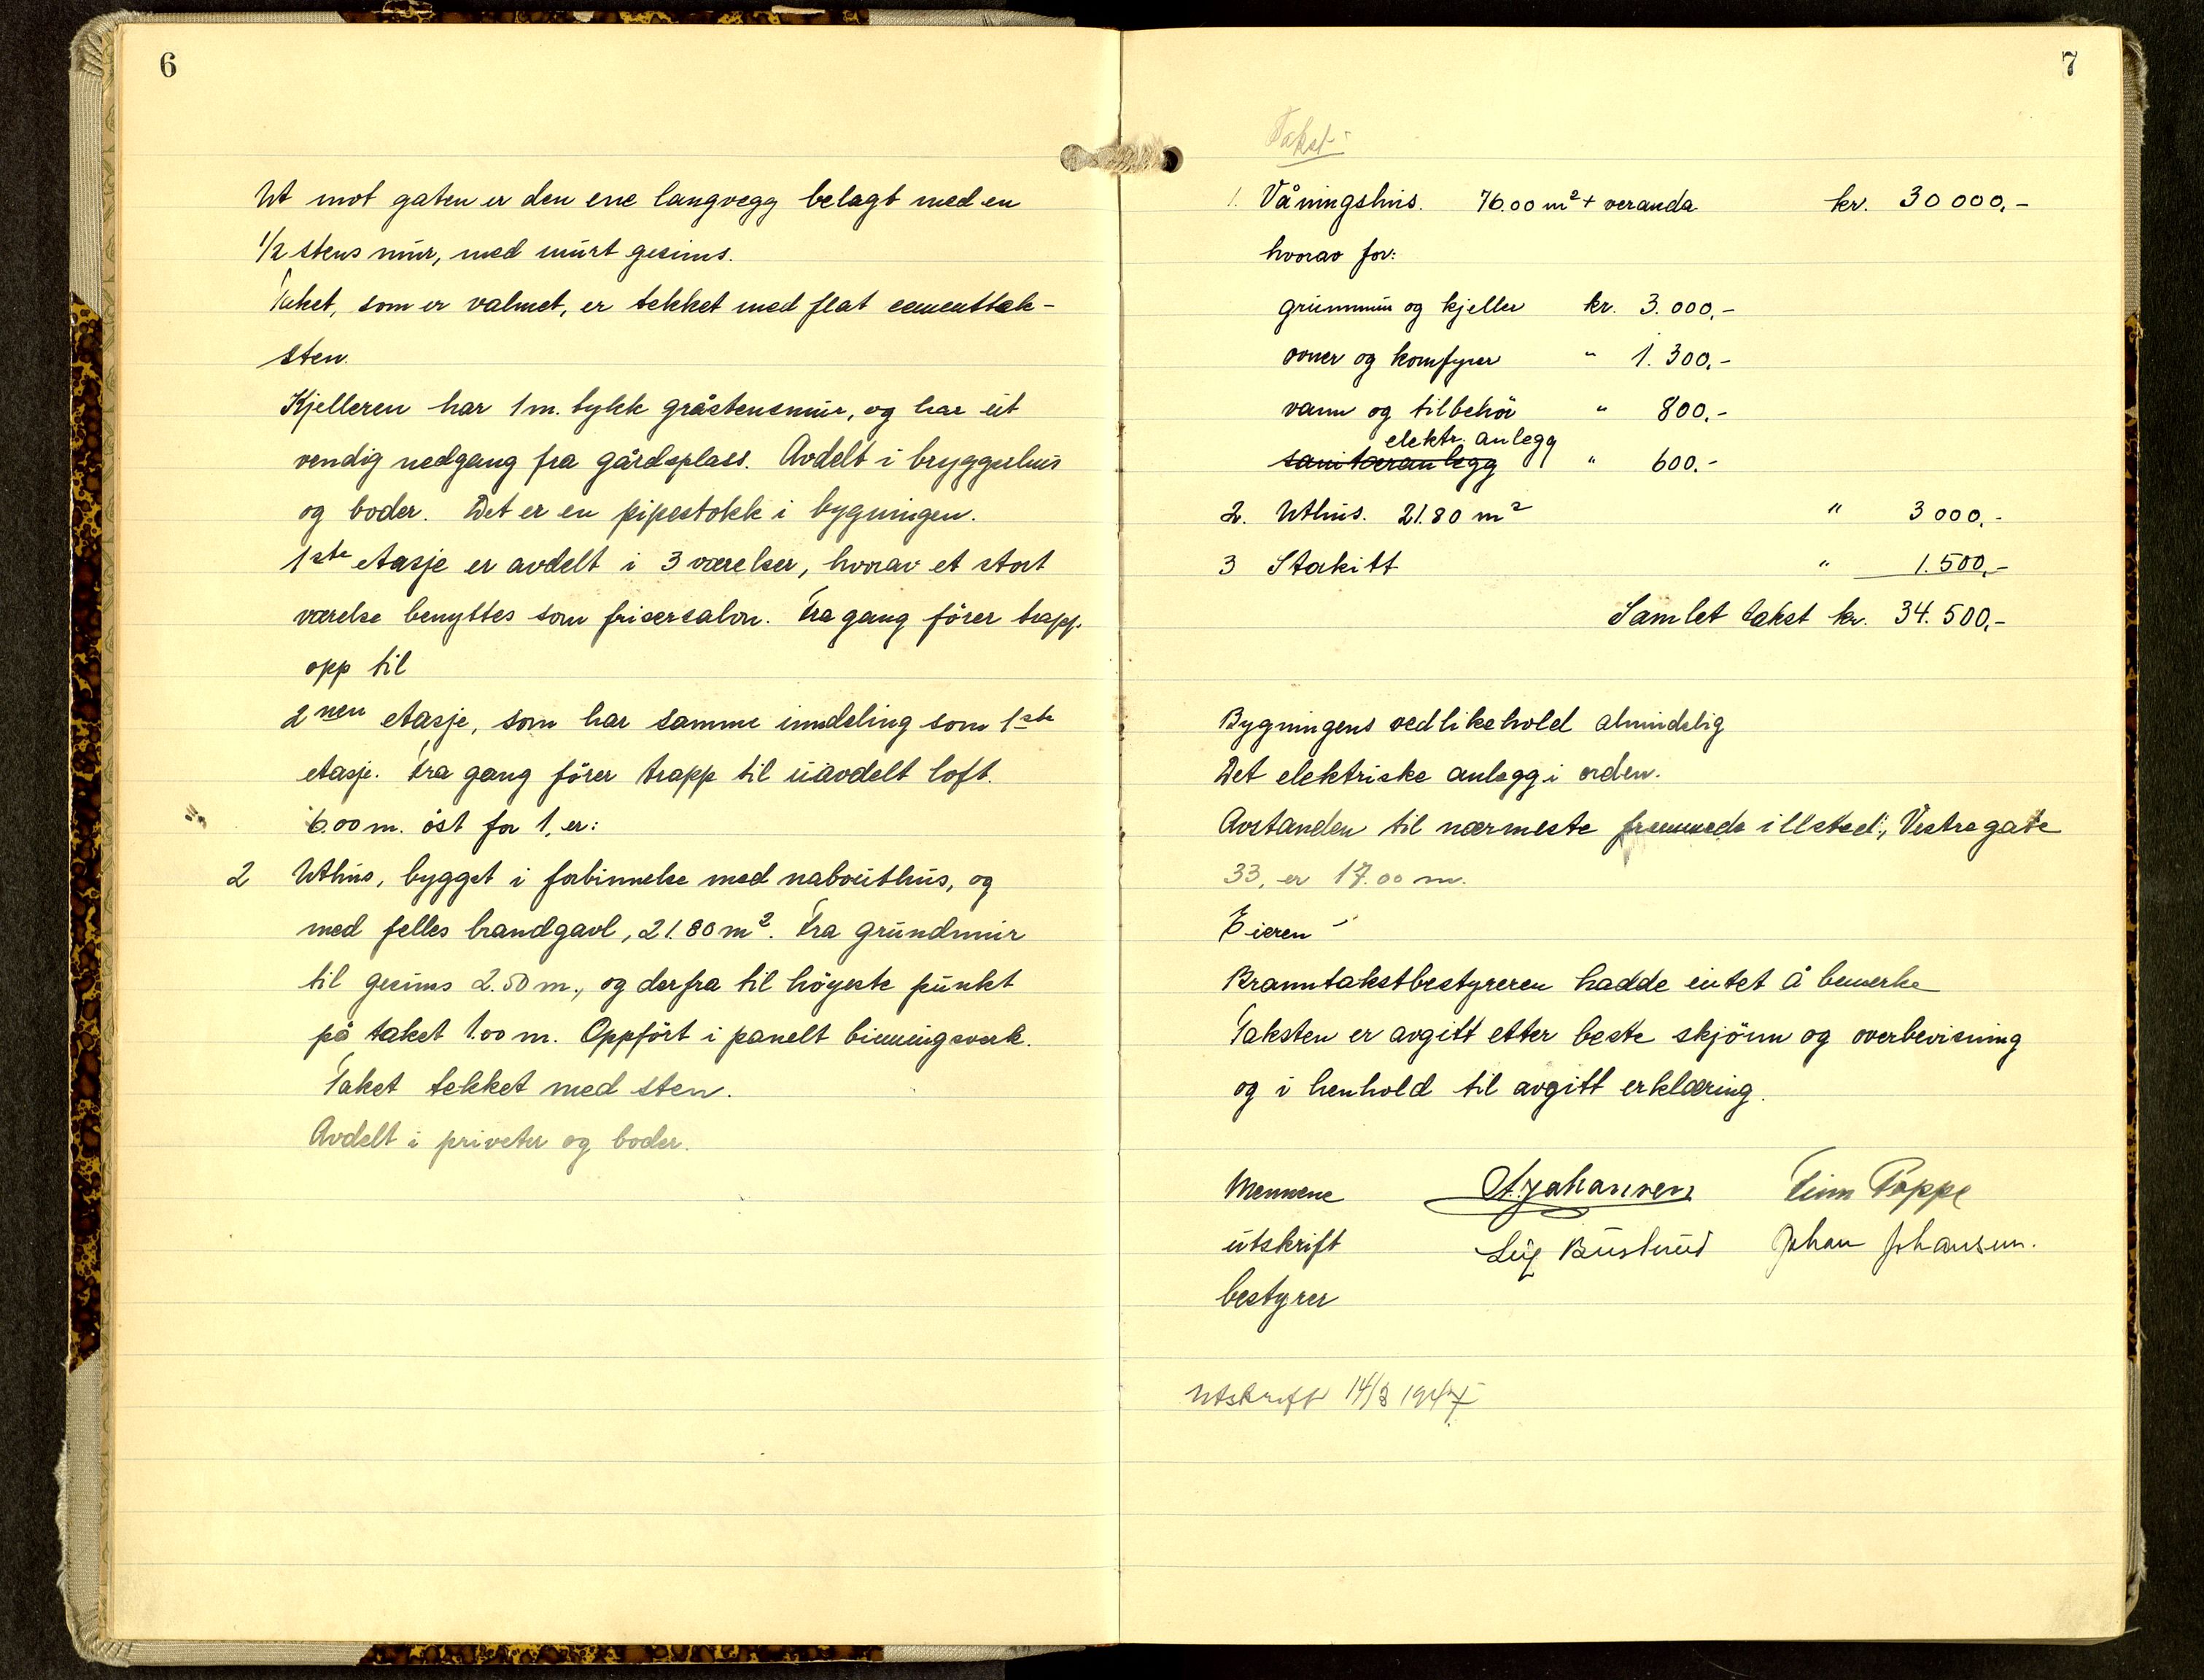 6
Ut mot gaten er den ene langvegg belagt med en
1/2 stens mur, med murt gesims.
Taket, som er valmet, er tekket med flat cementtak-
sten.
Kjelleren har 1 m. tykk gråstensmur, og har ut
vendig nedgang fra gårdsplass. Avdelt i bryggerhus
og boder. Det er en pipestokk i bygningen.
1ste etasje er avdelt i 3 værelser, hvorav et stort
værelse benyttes som frisersalon. Fra gang fører trapp.
opp til
2nen etasje, som har samme inndeling som 1ste
etasje. Fra gang fører trapp til uavdelt loft.
6.00 m. öst for 1, er:
2 Uthus, bygget i forbinnelse med nabouthus, og
med felles brandgavl, 21.80 m². Fra grundmur
til gesims 2.50 m., og derfra til höyeste punkt
på taket 1.00 m. Oppfört i panelt binningsverk.
Taket tekket med sten.
Avdelt i priveter og boder.
7
Takst:
1. Våningshus. 76.00 m² + veranda kr. 30 000,-
hvorav for:
grunnmur og kjeller kr. 3.000,-
ovner og komfyrer " 1.300,-
vann og tilbehör " 800,-
elektr. anlegg
sanitæranlegg " 600.-
2. Uthus. 21.80 m² " 3 000,-
3 Stakitt " 1.500,-
Samlet takst kr. 34.500,-
Bygningens vedlikehold almindelig
Det elektriske anlegg i orden.
Avstanden til nærmeste fremmede illsted, Vestregate
33, er 17.00 m.
Eieren
Branntakstbestyreren hadde intet å bemerke
Taksten er avgitt etter beste skjönn og overbevisning
og i henhold til avgitt erklæring.
Mennene A. Johansen Finn Poppe
utskrift Buslund Johan Johansen.
bestyrer
Utskrift 14/3 1947